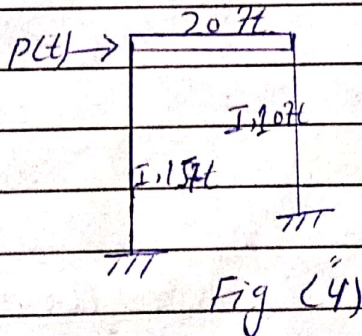 20 ft
P(t)
I, 10ft
I, 15ft
Fig (4)